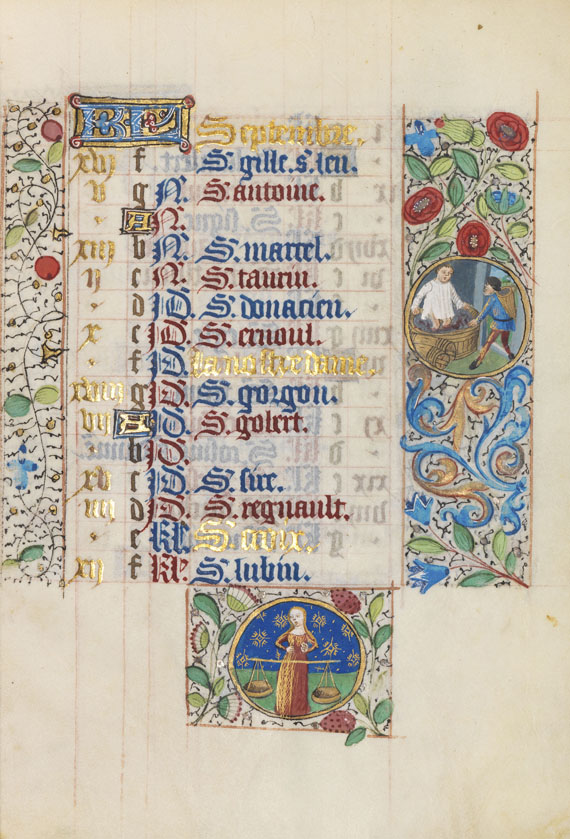 KL Septembre.
xvi f S. gille s. leu.
v g N. S. antoine.
A N.
xiii b N. S. martel.
ii c N. S. taurin.
d N. S. donacien.
x c D. S. ernoul.
f D. La nostre dame.
xviii g D. S. gorgon.
vii A D. S. golert.
b D.
xv c D. S. sire.
iiii d D. S. regnault.
e Kl. S. croix.
xii f Kl. S. lubin.